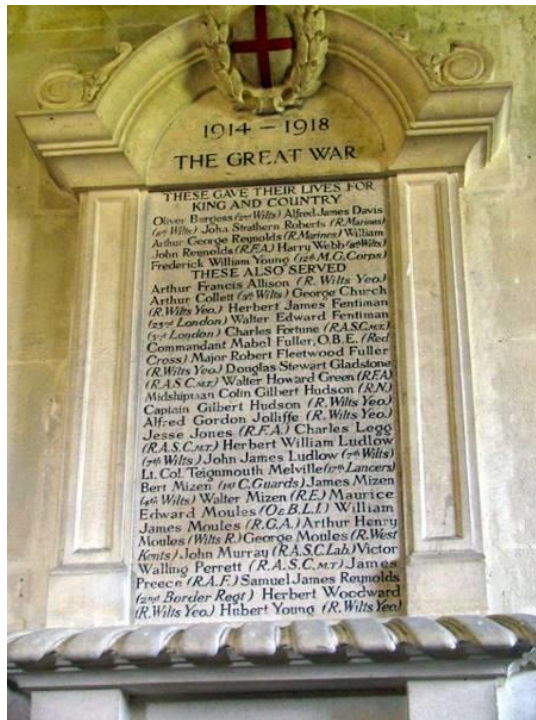 1914 – 1918
THE GREAT WAR
THESE GAVE THEIR LIVES FOR
KING AND COUNTRY
Oliver Burgess (2nd Wilts) Alfred James Davis
(2nd Wilts) John Strathern Roberts (R. Marines)
Arthur George Reynolds (R. Marines) William
John Reynolds (R.F.A.) Harry Webb (Wilts)
Frederick William Young (12th M.G. Corps)
THESE ALSO SERVED
Arthur Francis Allison (R. Wilts Yeo.)
Arthur Collett (Wilts) George Church
(R. Wilts Yeo.) Herbert James Fentiman
(23rd London) Walter Edward Fentiman
(London) Charles Fortune (R.A.S.C. M.T.)
Commandant Mabel Fuller, O.B.E. (Red
Cross) Major Robert Fleetwood Fuller
(R. Wilts Yeo.) Douglas Stewart Gladstone
(R.A.S.C. M.T.) Walter Howard Green (R.F.A)
Midshipman Colin Gilbert Hudson (R.N.)
Captain Gilbert Hudson (R. Wilts Yeo.)
Alfred Gordon Jolliffe (R. Wilts Yeo.)
Jesse Jones (R.F.A.) Charles Legg
(R.A.S.C. M.T.) Herbert William Ludlow
(7th Wilts) John James Ludlow (7th Wilts)
Lt. Col. Teignmouth Melville (17th Lancers)
Bert Mizen (1st C. Guards) James Mizen
(4th Wilts) Walter Mizen (R.E.) Maurice
Edward Moules (O & B.L.I.) William
James Moules (R.G.A.) Arthur Henry
Moules (Wilts R.) George Moules (R. West
Kents) John Murray (R.A.S.C. Lab.) Victor
Walling Perrett (R.A.S.C. M.T.) James
Preece (R.A.F.) Samuel James Reynolds
(2nd Border Regt) Herbert Woodward
(R. Wilts Yeo.) Hubert Young (R. Wilts Yeo.)